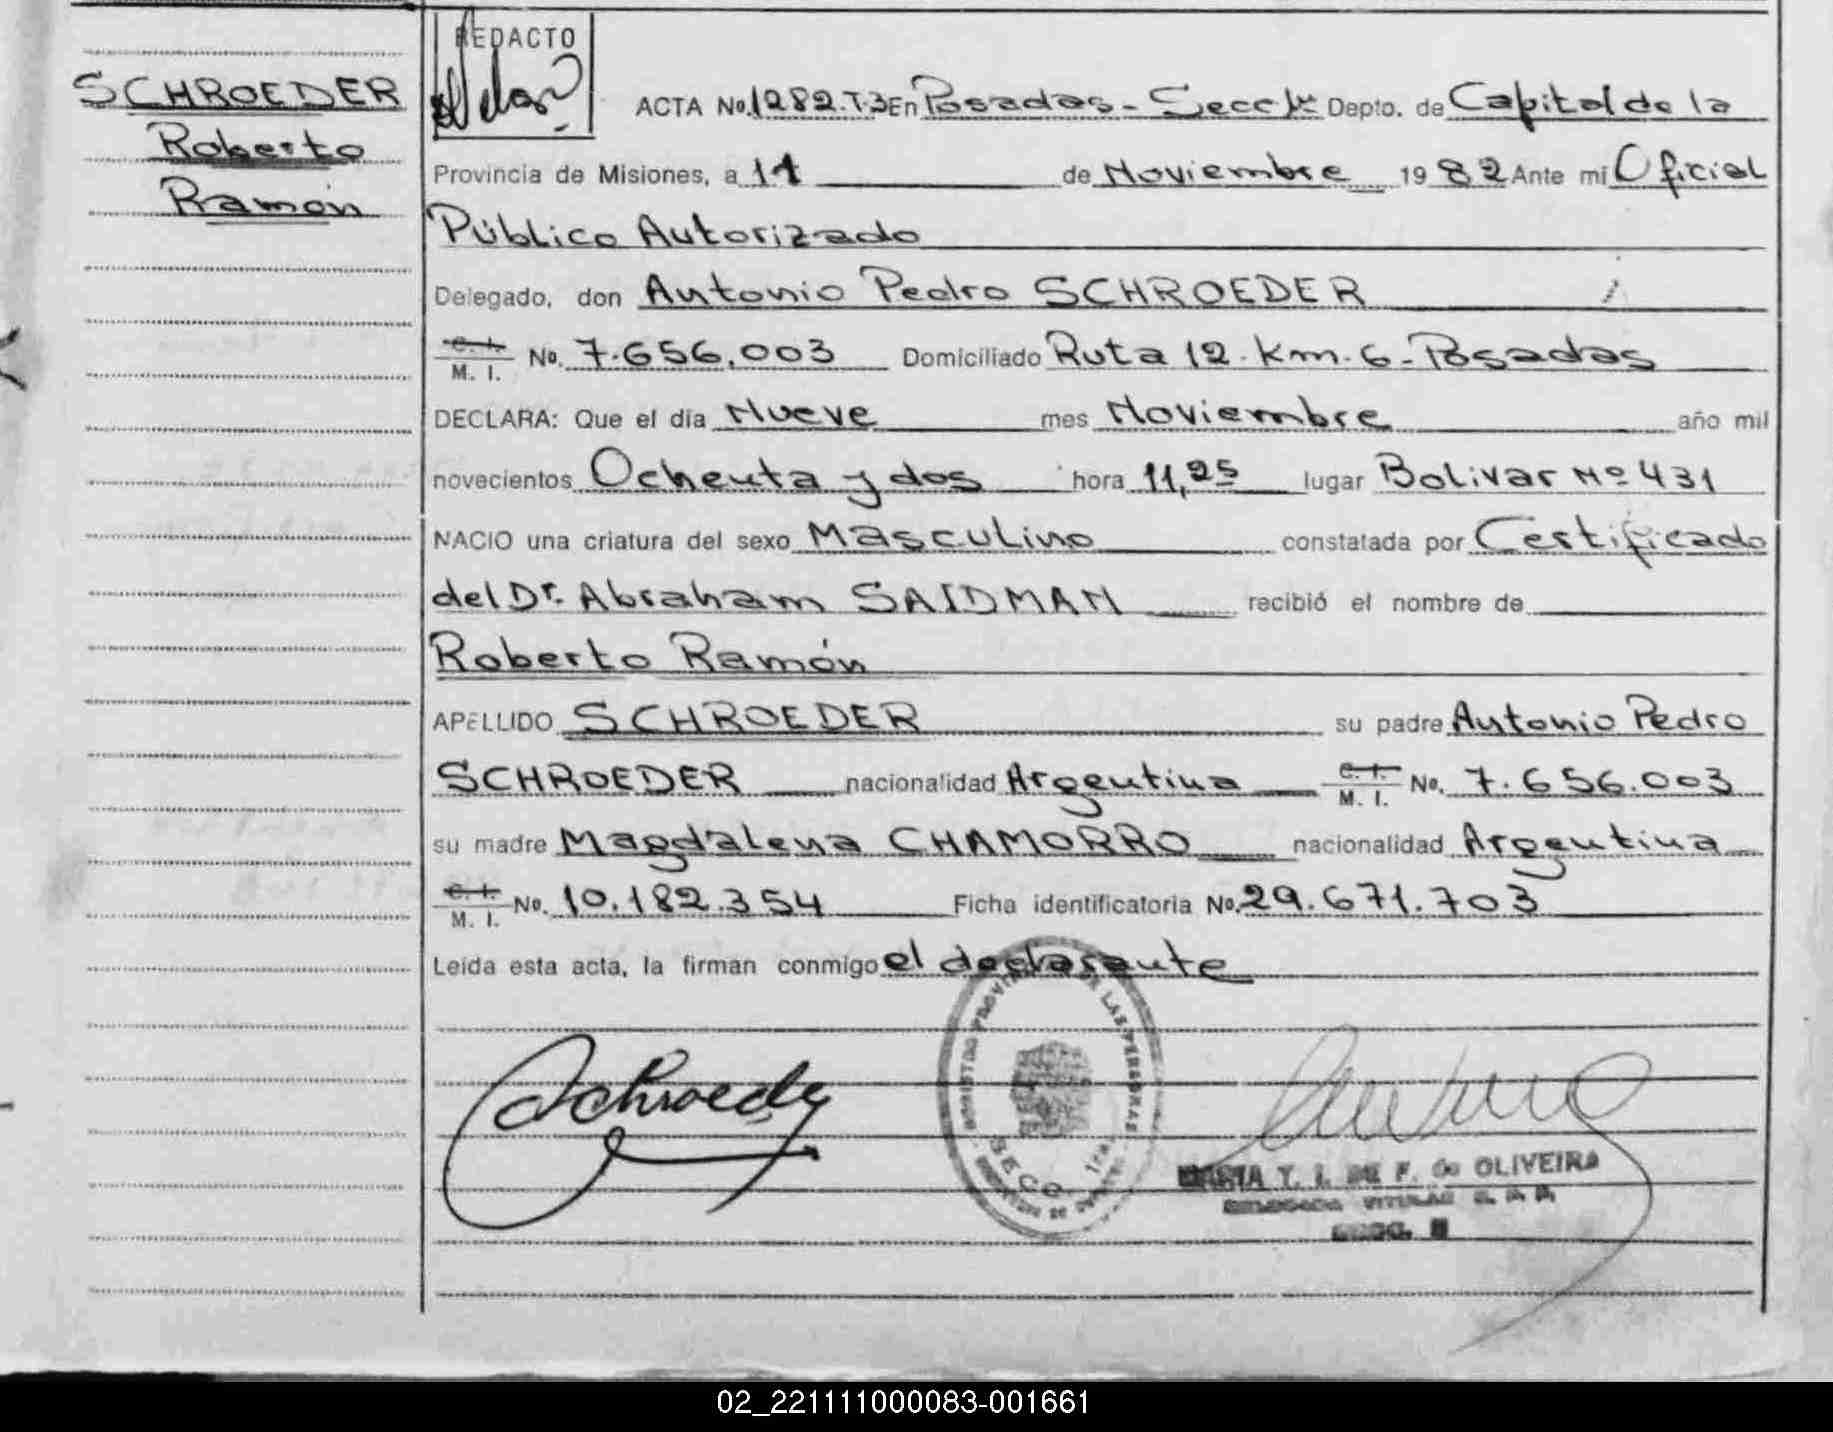 SCHROEDER
Roberto
Ramón
REDACTO
ACTA No. 1282.T.3 En Posadas - Secc 1ra Depto. de Capital de la
Provincia de Misiones, a 11 de Noviembre 1982 Ante mi Oficial
Público Autorizado
Delegado, don Antonio Pedro SCHROEDER
C. I. M. I. No. 7.656.003 Domiciliado Ruta 12. Km. 6 - Posadas
DECLARA: Que el día Nueve mes Noviembre año mil
novecientos Ochenta y dos hora 11,25 lugar Bolivar Nº 431
NACIO una criatura del sexo Masculino constatada por Certificado
del Dr. Abraham SAIDMAN recibió el nombre de
Roberto Ramón
APELLIDO SCHROEDER su padre Antonio Pedro
SCHROEDER nacionalidad Argentina C. I. M. I. No. 7.656.003
su madre Magdalena CHAMORRO nacionalidad Argentina
C. I. M. I. No. 10.182.354 Ficha identificatoria No. 29.671.703
Leída esta acta, la firman conmigo el declarante
Schroeder
REGISTRO PROVINCIAL DE LAS PERSONAS
SECC. 1ra.
MARIA Y. I. DE F. de OLIVEIRA
DELEGADA TITULAR R. P. P.
SECC.
02_221111000083-001661